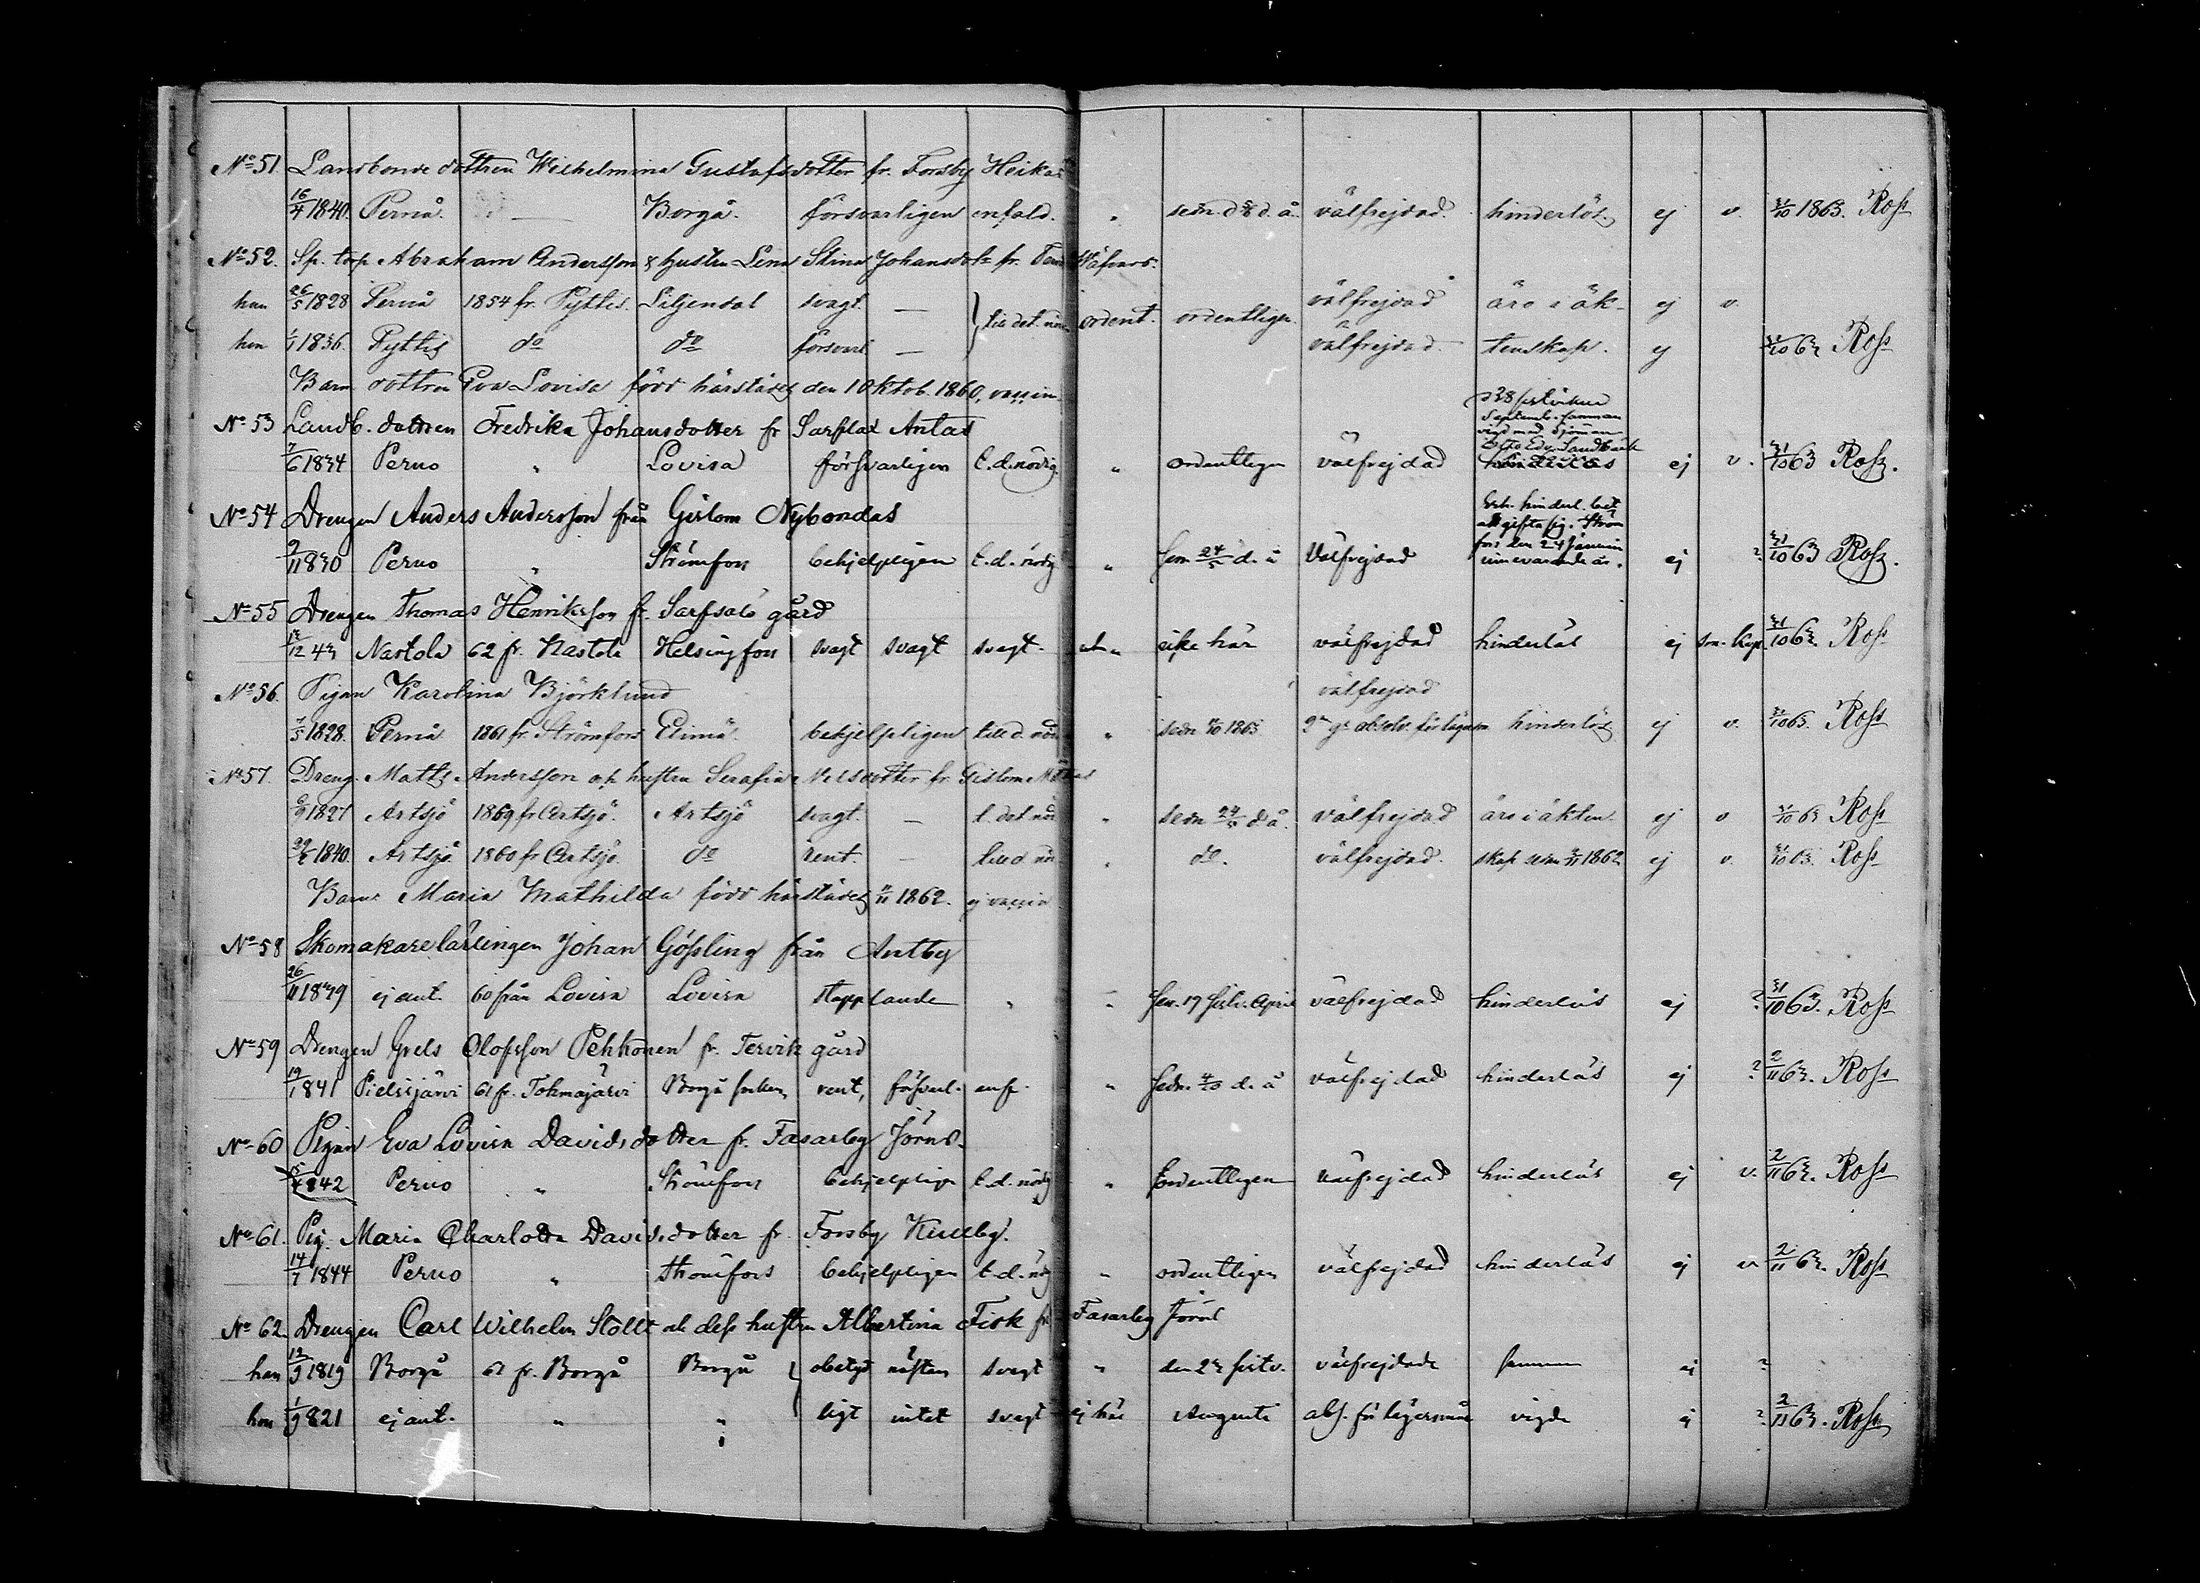 No 51. Landbonde dottren Wilhelmina Gustafsdotter fr. Forsby Heikas
16/4 1840. Pernå. — Borgå. försvarligen enfald. " sedn. d. å. välfrejdad. hinderlös. ej v. 31/10 1863. Ross
No 52. Sp. torp Abraham Andersson & hustru Lena Stina Johansdotr fr.
han 26/5 1828 Pernå 1854 fr. Pyttis. Liljendal svagt. — till det. ordent. ordentligen. välfrejdad äro i äk- ej v.
hon 1/1 1836. Pyttis do do försvarl — välfrejdad. tenskap. ej 31/10 63 Ross
Barn dottren Eva Lovisa född härstädes den 1 Oktob. 1860, vaccin.
No 53 Landb. dottren Fredrika Johansdotter fr Sarflax Antas
Septemb. samman
vigd med Sjöman
Otto Edv. Sandbäck
7/6 1834 Perno " Lovisa försvarligen t. d. nödig. " ordentligen välfrejdad hinderlös ej v. 31/10 63 Ross.
No 54 Drengen Anders Andersson från Gislom Nybondas
Erh. hinderl. bet
att gifta sig. Ström
fors den 24 Januari
innevarande år.
9/11 1830 Perno " Strömfors behjelpligen t. d. nödig " sen 24/5 d. å Välfrejdad ej ? 31/10 63 Ross.
No 55 Drengen Thomas Henriksson fr. Sarfsalö gård
12/12 43 Nastola 62 fr. Nastola Helsingfors svagt svagt svagt. icke här välfrejdad hinderlös ej 31/10 63 Ross
No 56. Pigan Karolina Björklund välfrejdad
7/5 1828. Pernå 1861 fr. Strömfors Elimä. behjelpligen till d. nöd " sedn 1863 absolv. för lägersm hinderlös ej v. 31/10 63. Ross
No 57. Dreng. Matts Andersson o. h. hustru Serafia Nilsdotter fr. Gislom
9/9 1827 Artsjö 1869 fr Artsjö. Artsjö svagt. — t. det nöd " sedn 24/5 d. å. välfrejdad äro i äkten ej v 31/10 63 Ross
1840. Artsjö 1860 fr Artsjö. do rent. — till d nöd " do. välfrejdad. skap sedn 1862 ej v. 31/10 63. Ross
Barn: Maria Mathilda född härstädes 1862. ej vaccin
No 58 Skomakarelärlingen Johan Gössling från Antby
26/11 1839 ej ant. 60 från Lovisa Lovisa stapplande " " sen. 17 April välfrejdad hinderlös ej ? 31/10 63. Ross
No 59 Drengen Grels Olofsson Pehkonen fr. Tervik gård
19/1 1841 Pielisjärvi 61 fr. Tohmajärvi Borgå socken rent, försvarl. enf. " sedn. 4/10 d. å välfrejdad hinderlös ej ? 2/11 63. Ross
No 60 Pigan Eva Lovisa Davidsdotter fr. Fasarby Jörns.
1842 Perno " Strömfors behjelpligen t. d. nödig " ordentligen välfrejdad hinderlös ej v. 2/11 63. Ross
No 61. Pig. Maria Charlotta Davidsdotter fr. Forsby Kullby.
14/7 1844 Perno " Strömfors behjelpligen t. d. nödig " ordentligen välfrejdad hinderlös ej v 2/11 63. Ross
No 62. Drengen Carl Wilhelm Stollt och dess hustru Albertina Fisk fr. Fasarby Jörns
han 12/9 1819 Borgå 61 fr. Borgå Borgå obetyd nästan svagt " den 23 sistv. välfrejdade samman ej ?
hon 1/9 821 ej ant. " " ligt intet svagt ej här Augusti abs. för lägersmål vigde ej ? 2/11 63. Ross